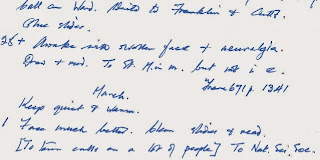 call on Ward. Write to Franklin & Curtis.
Blue slides.
28 + Awake with swollen face & neuralgia.
Draw & read. To St. M. in m. but not i e.
Trans 671 p 1341
March.
Keep quiet & warm.
1 Face much better. Clean slides & read.
[To town calls on a lot of people] To Nat. Sci. Soc.